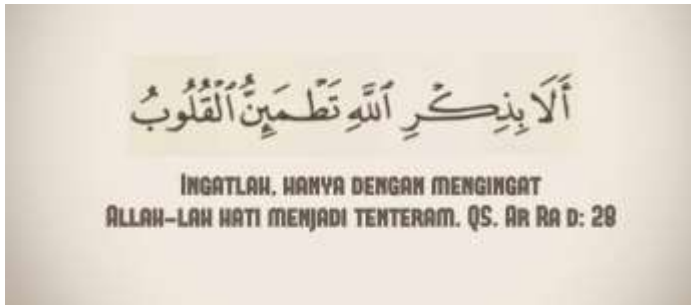 أَلَا بِذِكْرِ ٱللَّهِ تَطْمَئِنُّ ٱلْقُلُوبُ
INGATLAH, HANYA DENGAN MENGINGAT
ALLAH-LAH HATI MENJADI TENTERAM. QS. AR RA D: 28